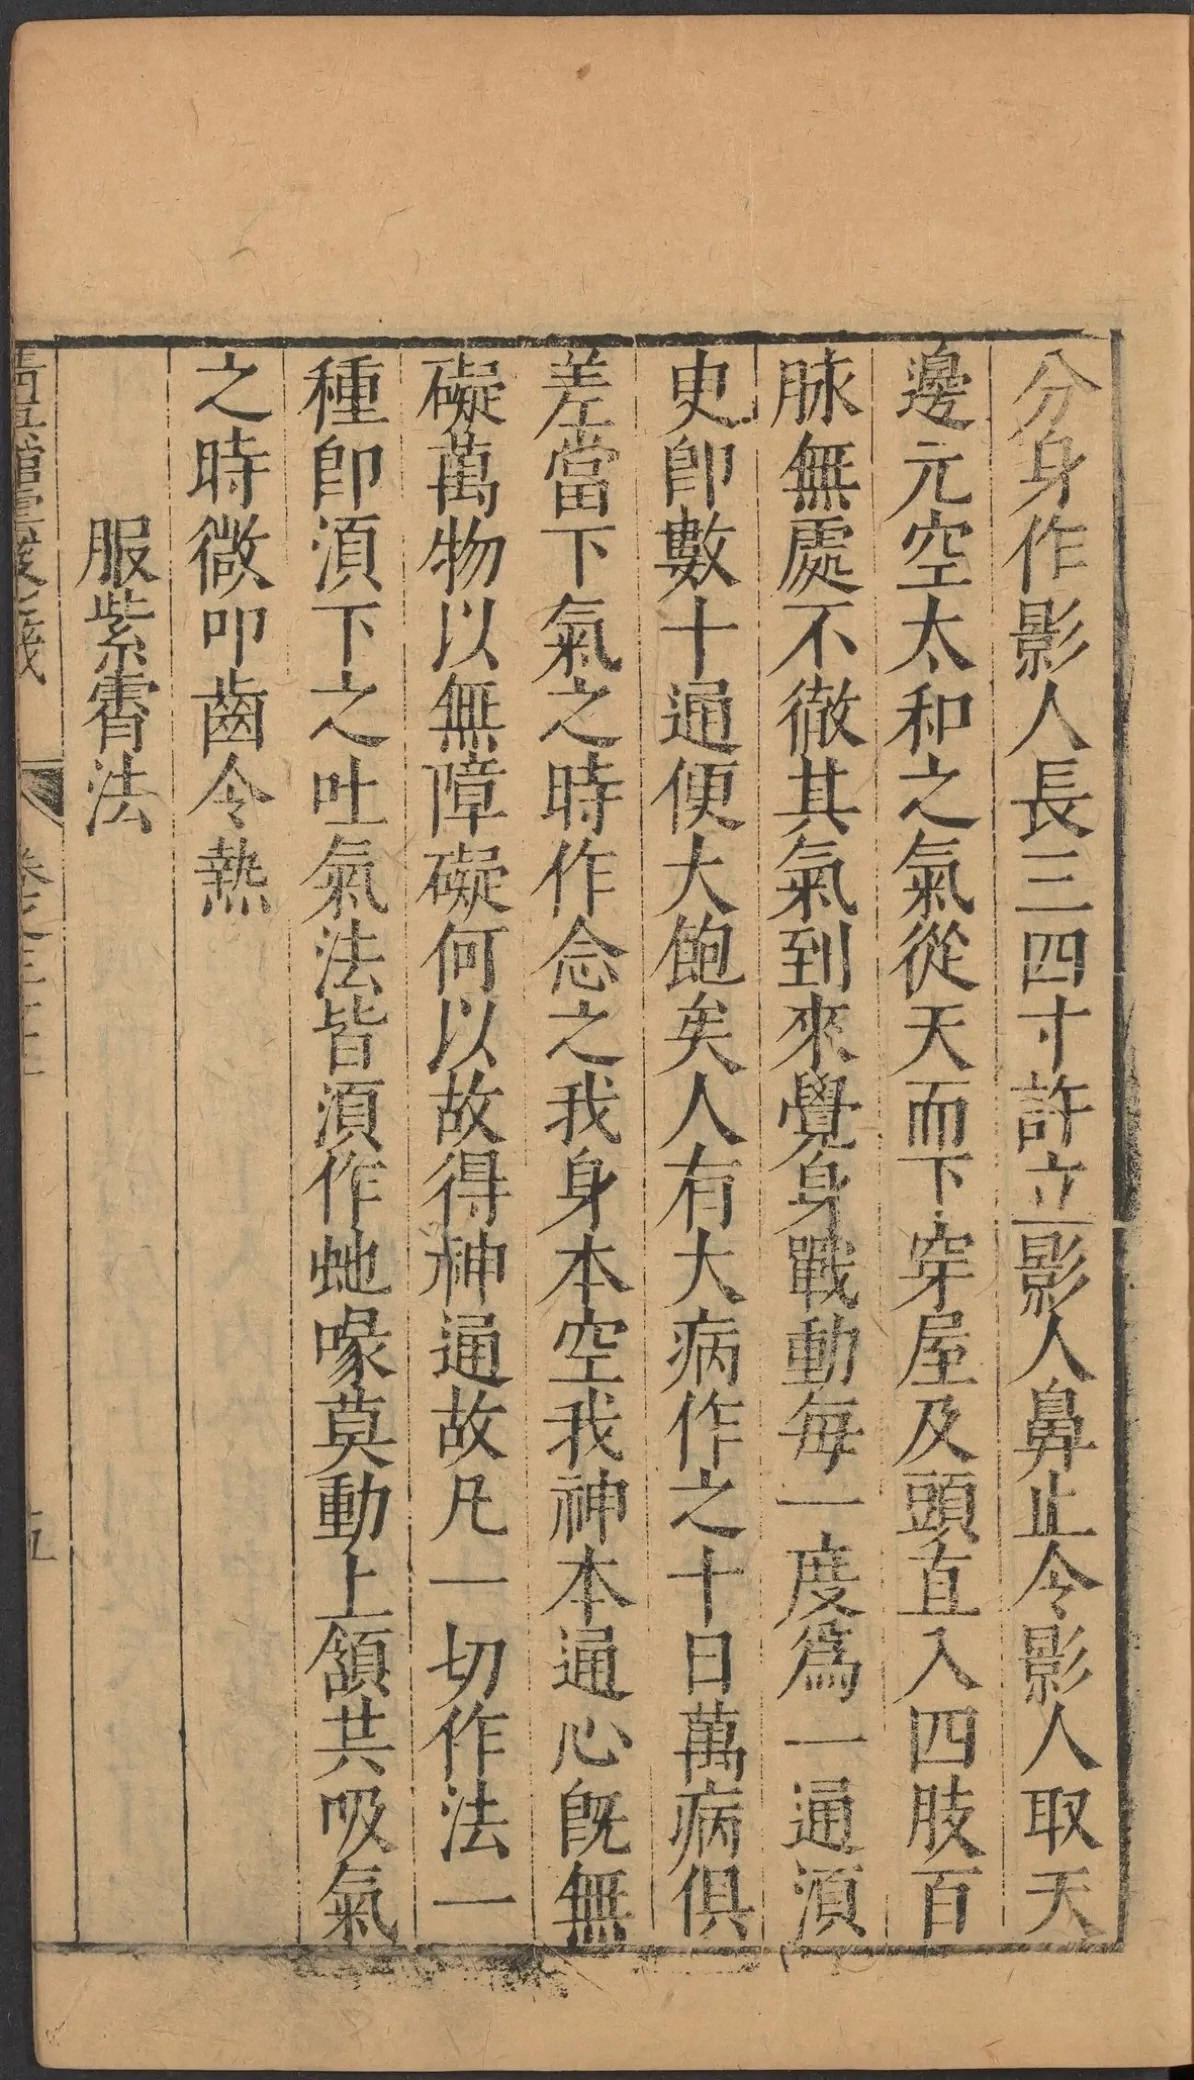 分身作影人長三四寸許立影人鼻止令影人取天
邊元空太和之氣從天而下穿屋及頭直入四肢百
脉無處不徹其氣到來覺身戰動每一度爲一通須
臾卽數十通便大飽矣人有大病作之十日萬病俱
差當下氣之時作念之我身本空我神本通心旣無
礙萬物以無障礙何以故得神通故凡一切作法一
種卽須下之吐氣法皆須作虵喙莫動上頷共吸氣
之時微叩齒令熱
服紫霄法
五